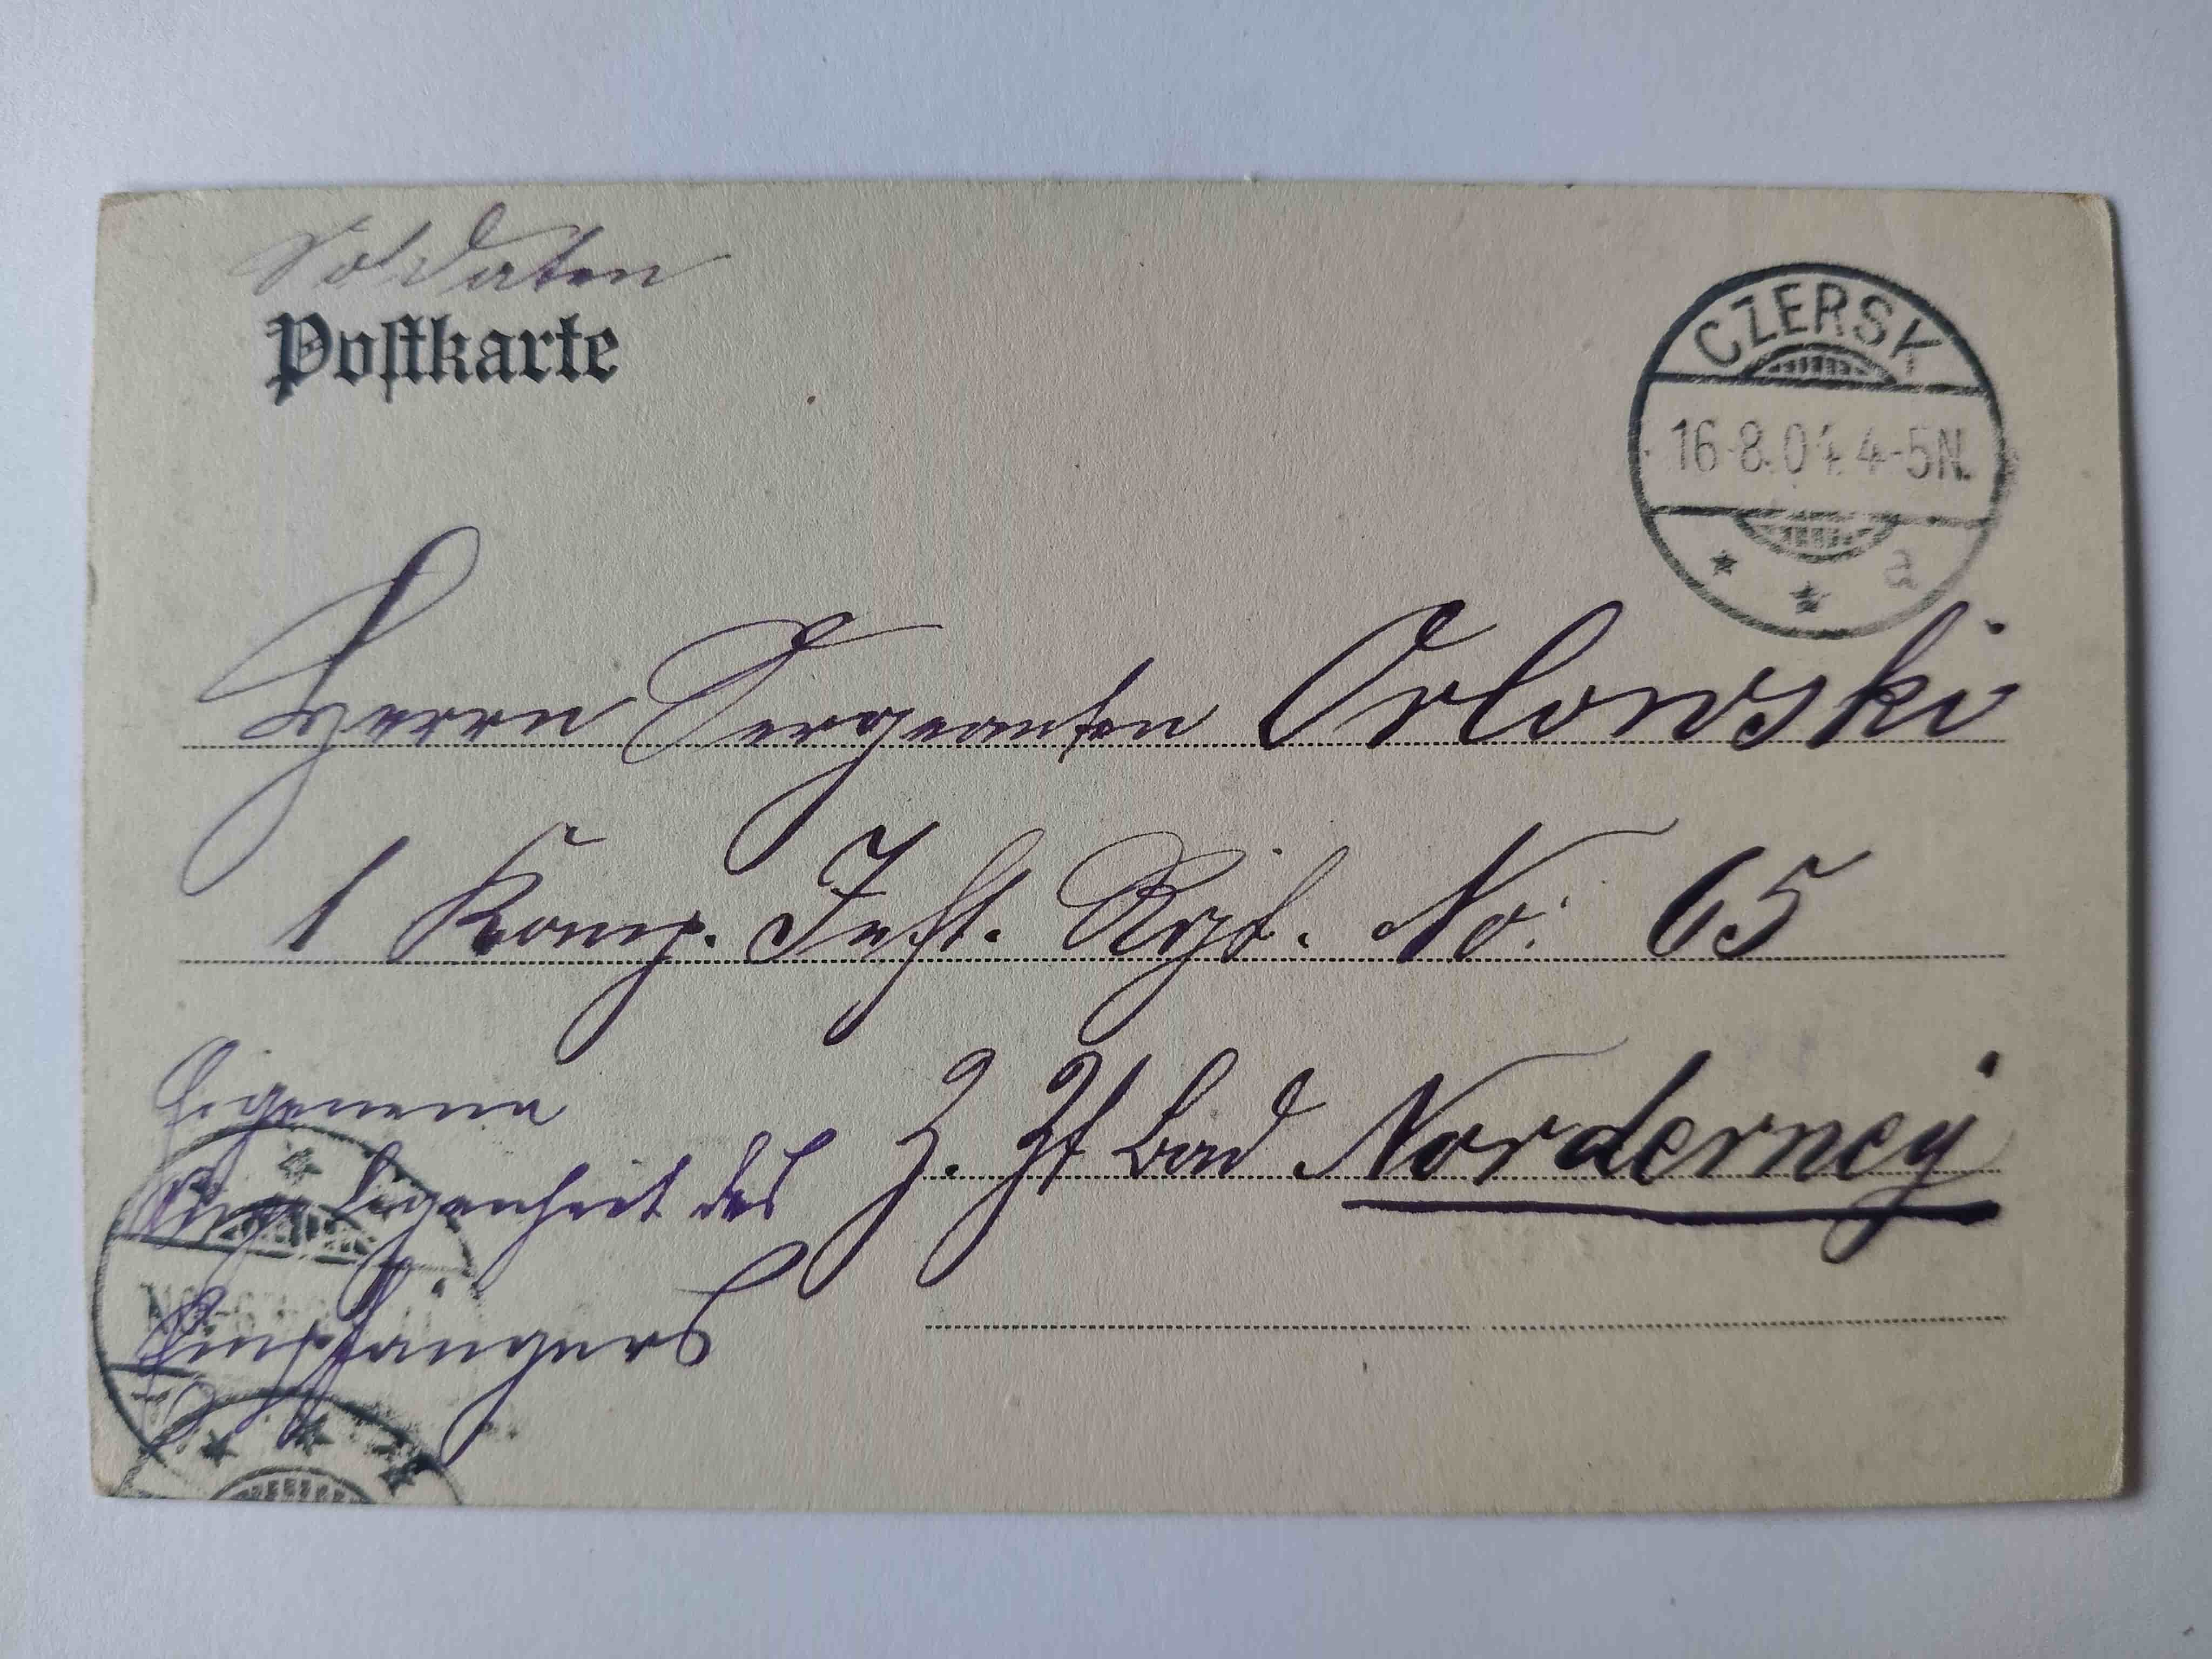 Soldaten
Postkarte
CZERSK
16.8.04. 4-5N.
* * a
Herrn Sergeanten Orlowski
1 Komp. Inft. Rgt. No: 65
Z. Zt Bad Norderney
Eigene
Angelegenheit des
Empfängers